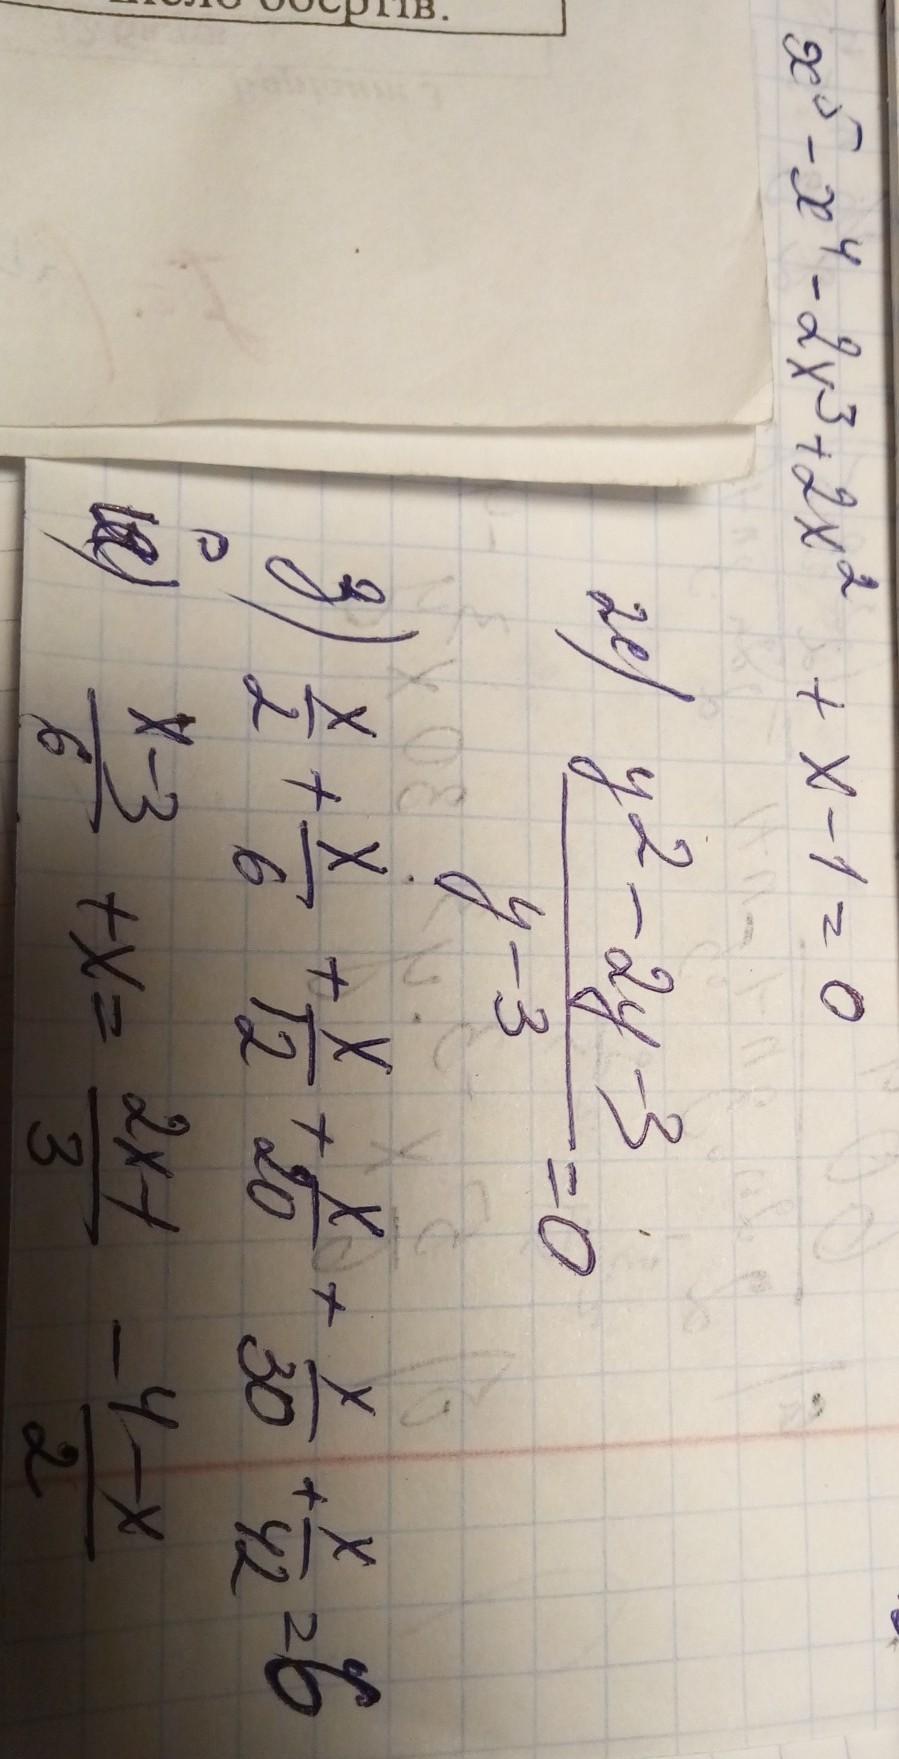 число обертів.
x⁵ - x⁴ - 2x³ + 2x² + x - 1 = 0
2e) (y2 - 2y - 3)/(y - 3) = 0
3) x/2 + x/6 + x/12 + x/20 + x/30 + x/42 = 6
x-3/6 + x = 2x-1/3 - 4-x/2